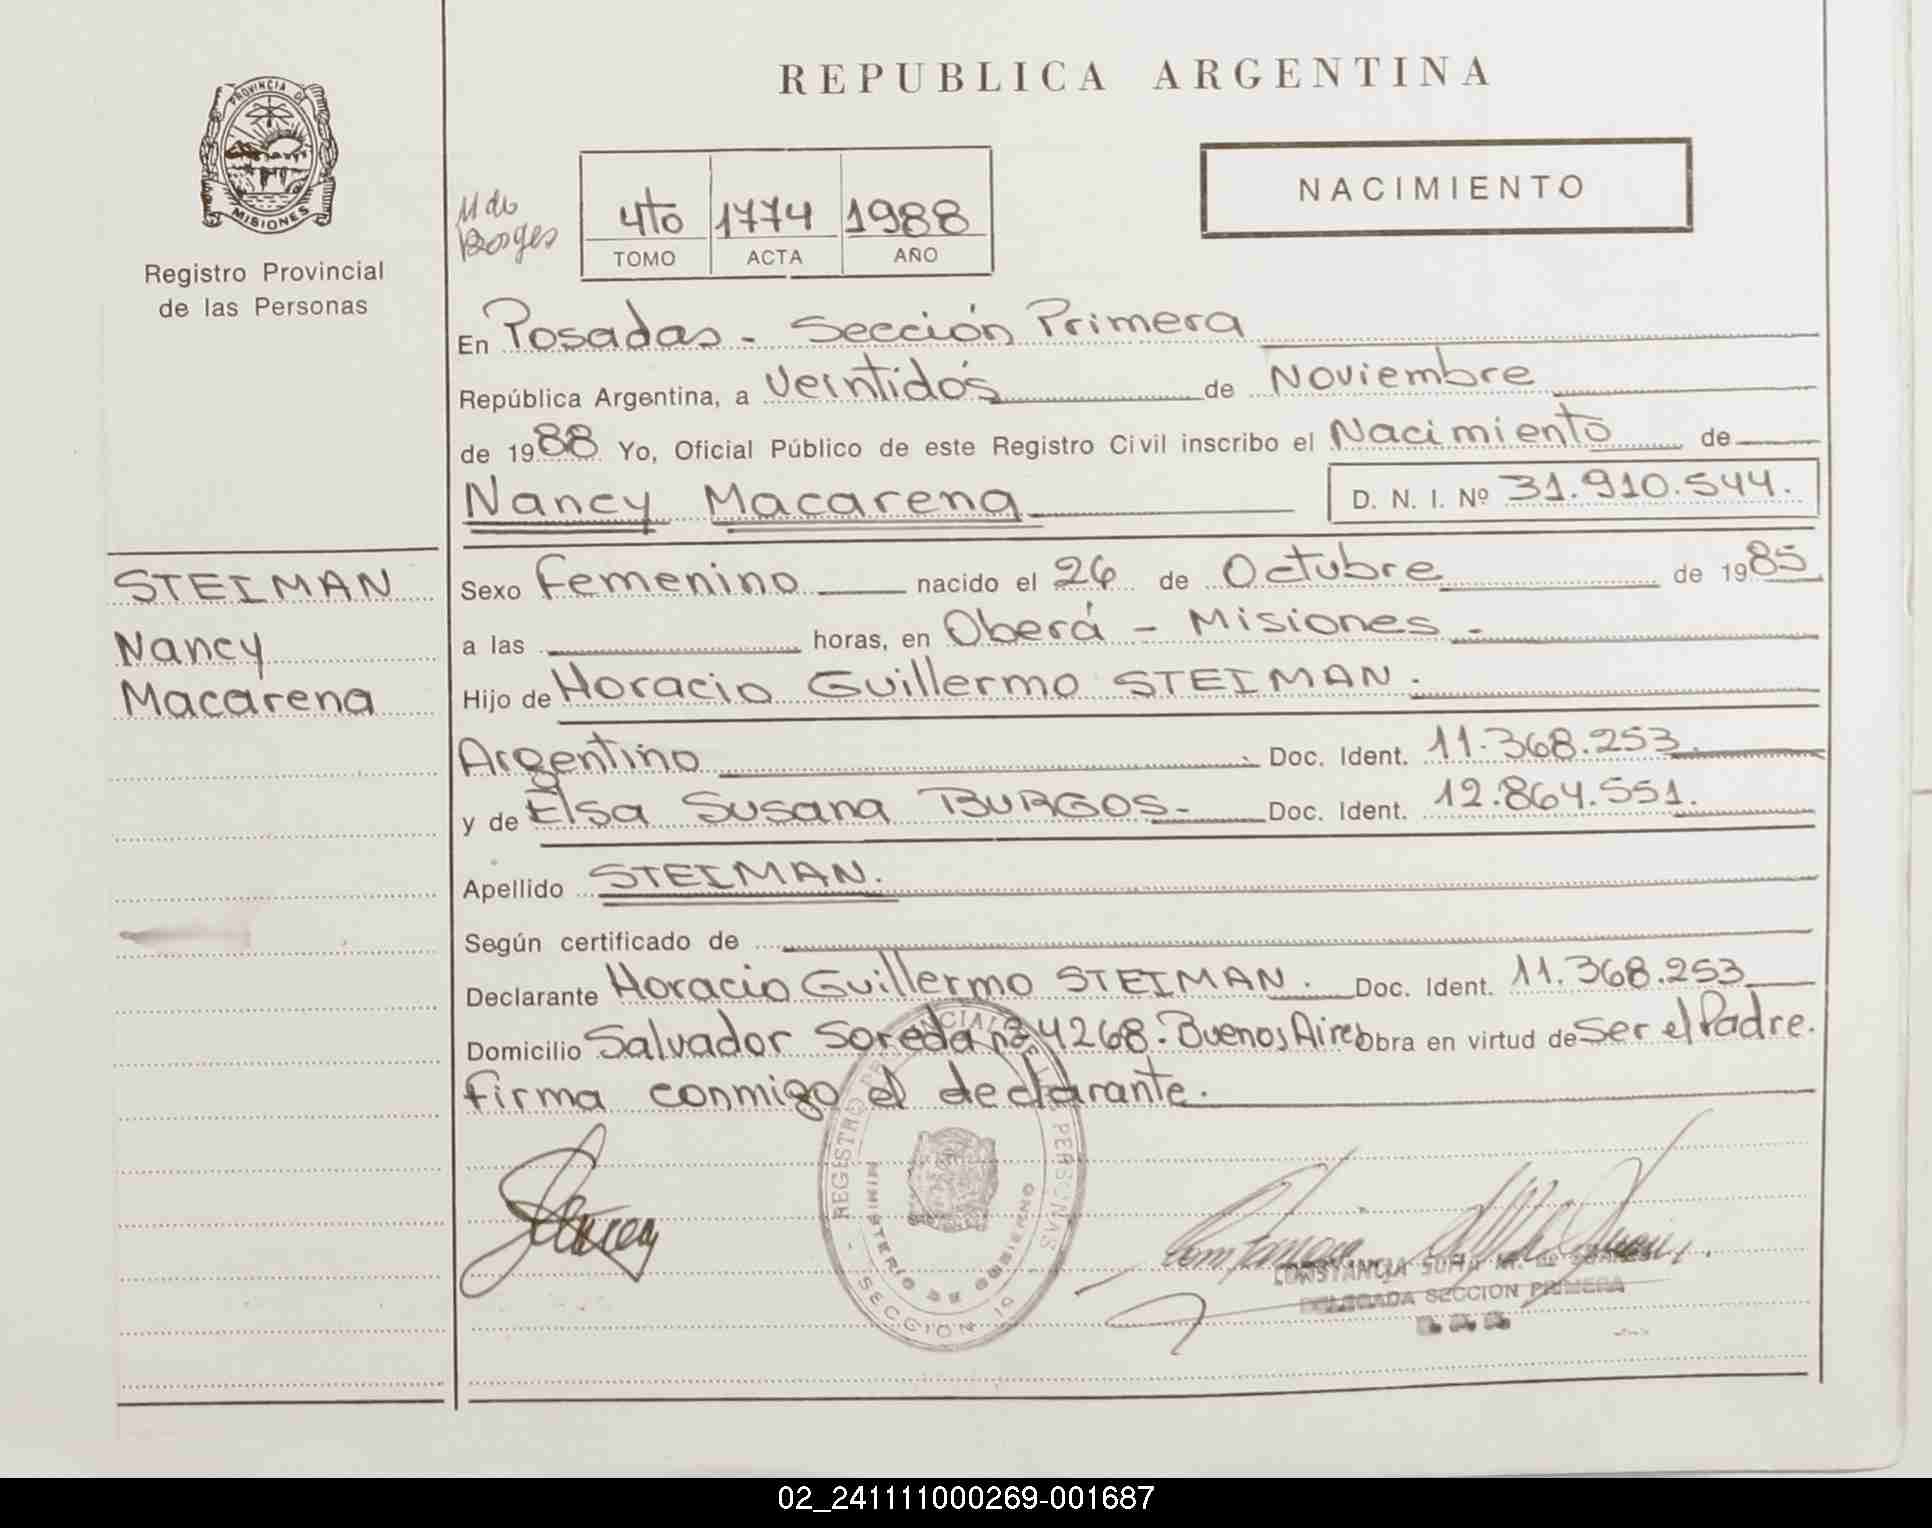 REPUBLICA ARGENTINA
PROVINCIA DE
MISIONES
Registro Provincial
de las Personas
NACIMIENTO
4to 1774 1988
TOMO ACTA AÑO
En Posadas - Sección Primera
República Argentina, a Veintidós de Noviembre
de 1988 Yo, Oficial Público de este Registro Civil inscribo el Nacimiento de
Nancy Macarena D. N. I. Nº 31.910.544.
STEIMAN
Nancy
Macarena
Sexo Femenino nacido el 26 de Octubre de 1985
a las horas, en Oberá - Misiones -
Hijo de Horacio Guillermo STEIMAN.
Argentino. Doc. Ident. 11.368.253
y de Elsa Susana BURGOS- Doc. Ident. 12.864.551.
Apellido STEIMAN.
Según certificado de
Declarante Horacio Guillermo STEIMAN. Doc. Ident. 11.368.253
Domicilio Salvador Soreda nº 4268. Buenos Aires Obra en virtud de Ser el Padre.
Firma conmigo el declarante.
REGISTRO PROVINCIAL DE LAS PERSONAS
MINISTERIO DE GOBIERNO
SECCION 1º
CONSTANCIA SOFIA M. de
DELEGADA SECCION PRIMERA
02_241111000269-001687